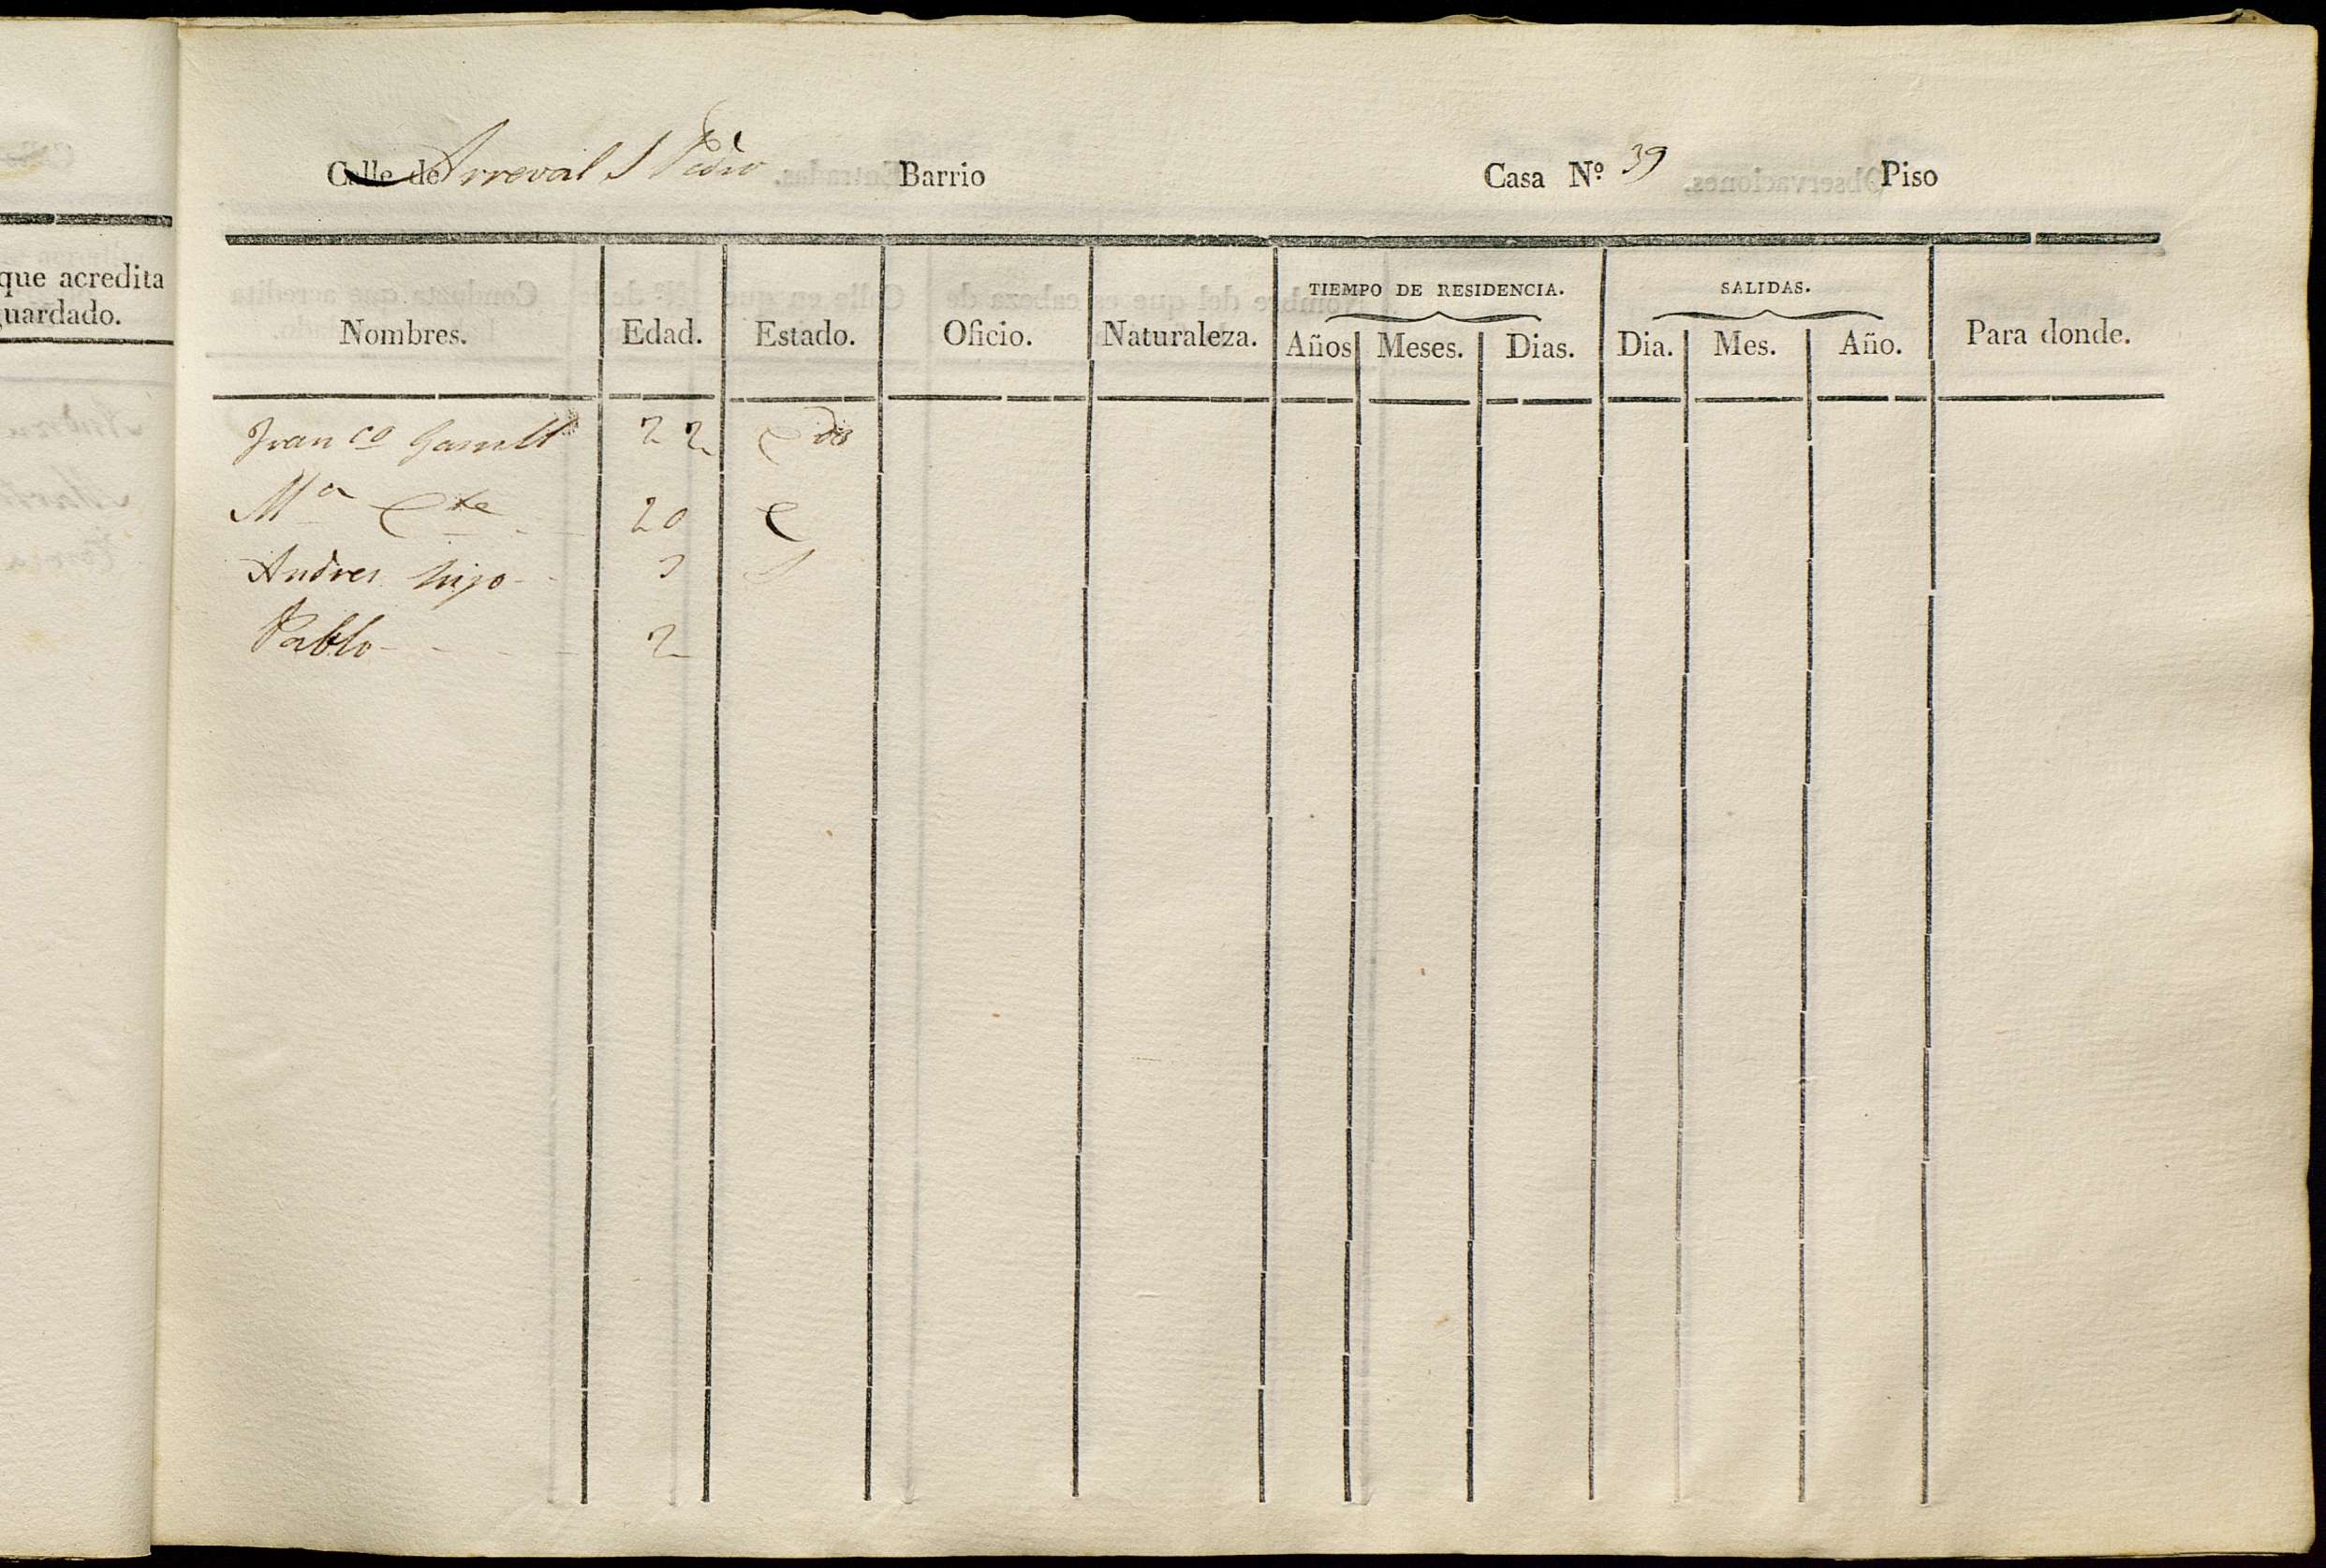 que acredita
uardado.
Calle de Arreval S Pedro Barrio Casa Nº 39 Piso
Nombres. Edad. Estado. Oficio. Naturaleza. TIEMPO DE RESIDENCIA. SALIDAS. Para donde.
Años Meses. Dias. Dia. Mes. Año.
Franco 22 C do
Ma C te 20 C
Andres hijo 3 S
Pablo 2